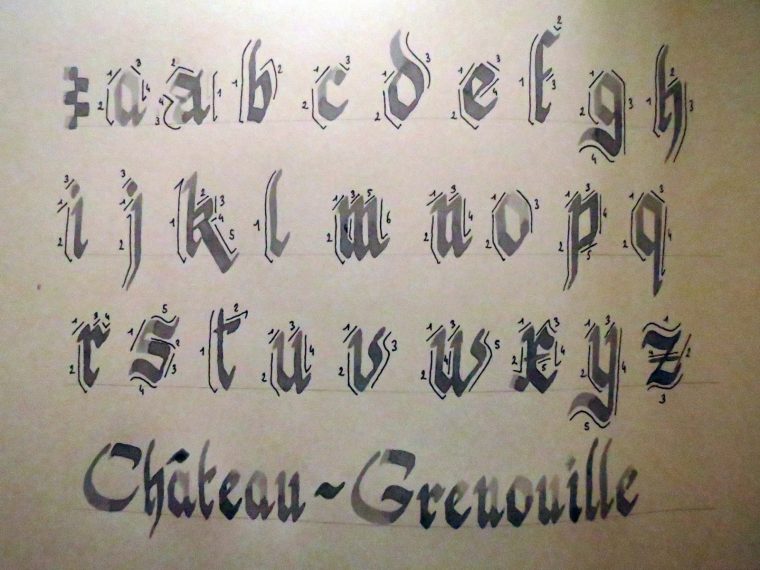 a a b c d e f g h
i j k l m n o p q
r s t u v w x y z
Château~Grenouille